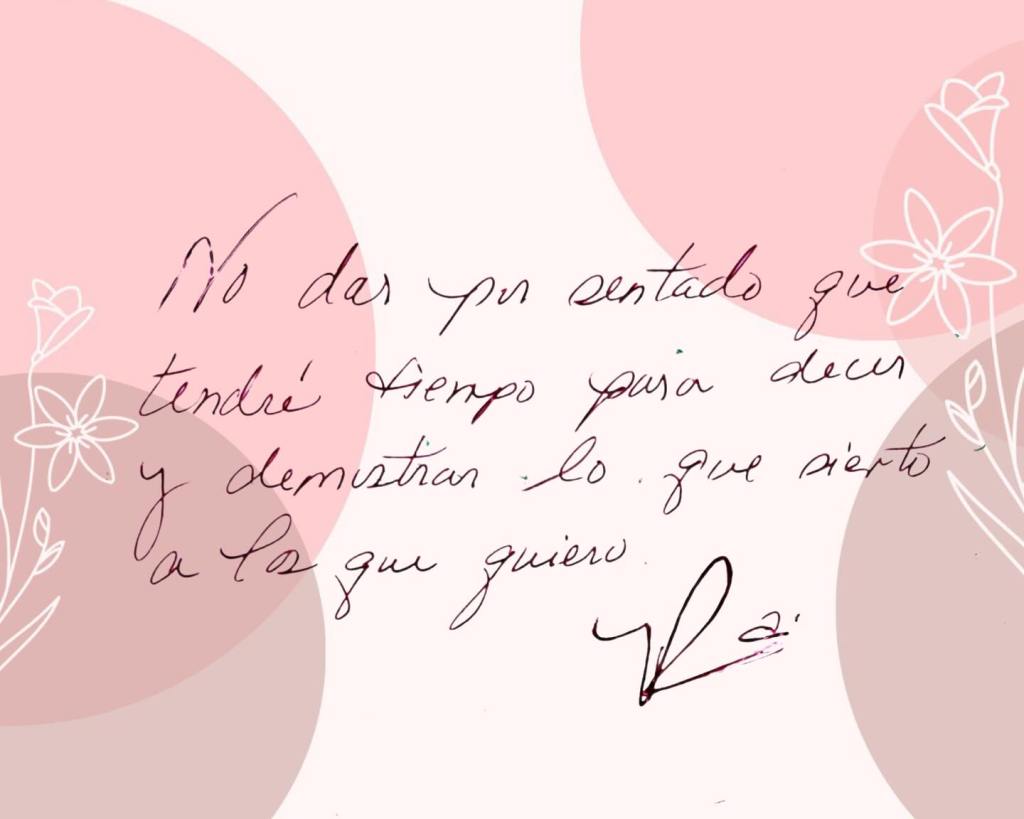 No dar por sentado que
tendré tiempo para decir
y demostrar lo que siento
a los que quiero